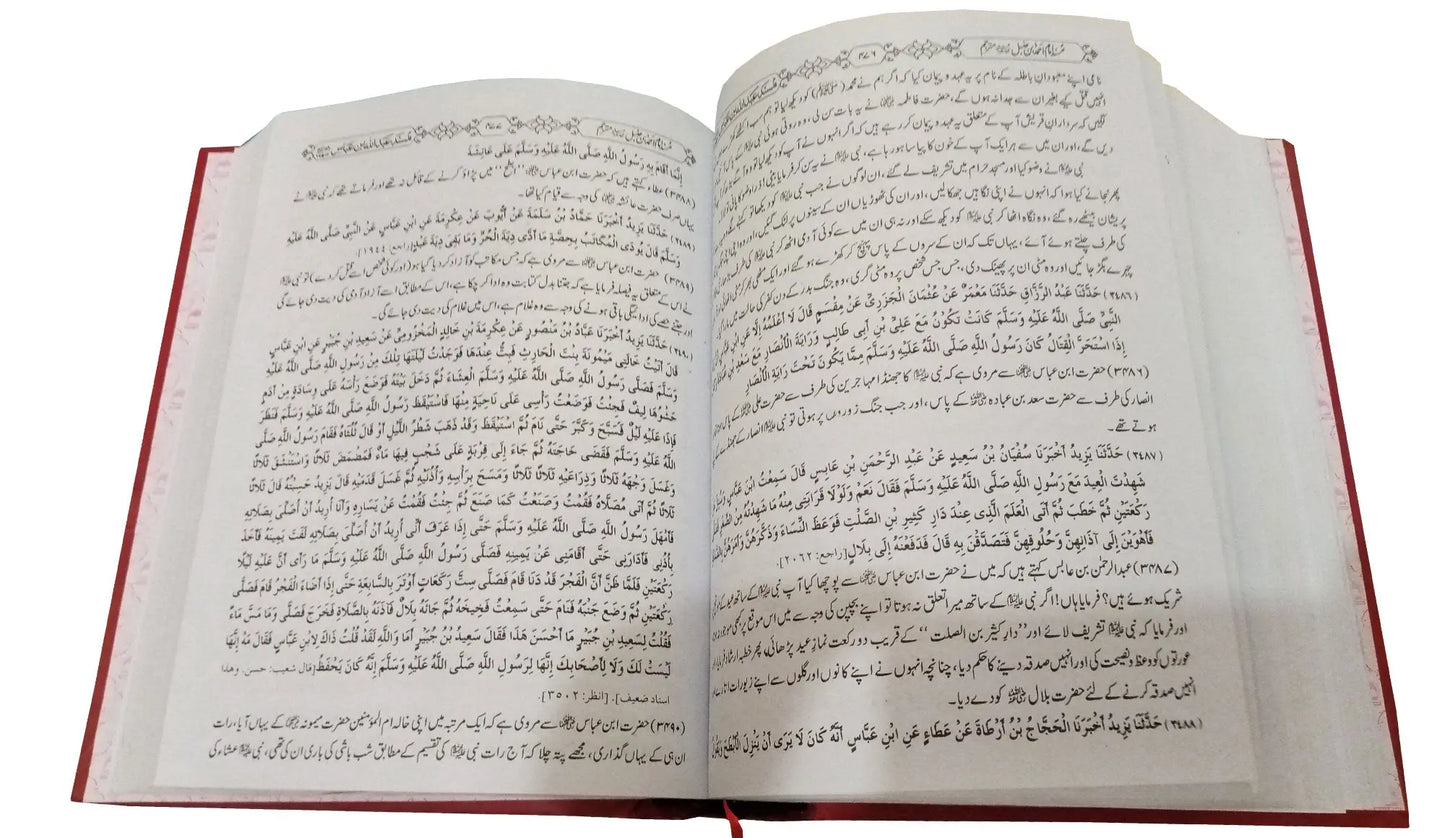 مُسند امام احمد بن حنبل مترجم
۴۷۶
نامی اپنے معبودانِ باطلہ کے نام پر یہ عہد و پیمان کیا کہ اگر ہم نے محمد (ﷺ) کو دیکھ لیا تو ہم سب اکٹھے
انہیں قتل کیے بغیر ان سے جدا نہ ہوں گے، حضرت فاطمہ نے یہ بات سن لی، وہ روتی ہوئی نبی
لگیں کہ سردارانِ قریش آپ کے متعلق یہ عہد و پیمان کر رہے ہیں کہ اگر انہوں نے آپ کو دیکھ لیا تو وہ آگے بڑھ
دیں گے، اور ان میں سے ہر ایک آپ کے خون کا پیاسا ہو رہا ہے، نبی نے یہ سن کر فرمایا بیٹی! ذرا وضو کا پانی
نبی نے وضو کیا اور مسجد حرام میں تشریف لے گئے، ان لوگوں نے جب نبی کو دیکھا تو کہنے
پھر نجانے کیا ہوا کہ انہوں نے اپنی نگاہیں جھکا لیں، اور ان کی ٹھوڑیاں ان کے سینوں پر لٹک گئیں، اور وہ اپنی
پریشان بیٹھے رہ گئے، وہ نگاہ اٹھا کر نبی کو دیکھ سکے اور نہ ہی ان میں سے کوئی آدمی اٹھ کر نبی کی طرف
کی طرف چلتے ہوئے آئے، یہاں تک کہ ان کے سروں کے پاس پہنچ کر کھڑے ہو گئے اور ایک مٹھی بھر کر مٹی
چہرے بگڑ جائیں اور وہ مٹی ان پر پھینک دی، جس جس شخص پر وہ مٹی گری، وہ جنگِ بدر کے دن کفر کی حالت میں مارا
(۳۴۸۶) حَدَّثَنَا عَبْدُ الرَّزَّاقِ حَدَّثَنَا مَعْمَرٌ عَنْ عُثْمَانَ الْجَزَرِيِّ عَنْ مِقْسَمٍ قَالَ لَا أَعْلَمُهُ إِلَّا عَنِ ابْنِ
النَّبِيِّ صَلَّى اللَّهُ عَلَيْهِ وَسَلَّمَ كَانَتْ تَكُونُ مَعَ عَلِيِّ بْنِ أَبِي طَالِبٍ وَرَايَةُ الْأَنْصَارِ مَعَ سَعْدِ بْنِ
إِذَا اسْتَحَرَّ الْقِتَالُ كَانَ رَسُولُ اللَّهِ صَلَّى اللَّهُ عَلَيْهِ وَسَلَّمَ مِمَّا يَكُونُ تَحْتَ رَايَةِ الْأَنْصَارِ
(۳۴۸۶) حضرت ابن عباس سے مروی ہے کہ نبی کا جھنڈا مہاجرین کی طرف سے حضرت علی کے پاس
انصار کی طرف سے حضرت سعد بن عبادہ کے پاس، اور جب جنگ زوروں پر ہوتی تو نبی انصار کے جھنڈے
ہوتے تھے۔
(۳۴۸۷) حَدَّثَنَا يَزِيدُ أَخْبَرَنَا سُفْيَانُ بْنُ سَعِيدٍ عَنْ عَبْدِ الرَّحْمَنِ بْنِ عَابِسٍ قَالَ سَمِعْتُ ابْنَ عَبَّاسٍ
شَهِدْتَ الْعِيدَ مَعَ رَسُولِ اللَّهِ صَلَّى اللَّهُ عَلَيْهِ وَسَلَّمَ فَقَالَ نَعَمْ وَلَوْلَا قَرَابَتِي مِنْهُ مَا شَهِدْتُهُ مِنَ
رَكْعَتَيْنِ ثُمَّ خَطَبَ ثُمَّ أَتَى الْعَلَمَ الَّذِي عِنْدَ دَارِ كَثِيرِ بْنِ الصَّلْتِ فَوَعَظَ النِّسَاءَ وَذَكَّرَهُنَّ وَأَمَرَهُنَّ
فَأَهْوَيْنَ إِلَى آذَانِهِنَّ وَحُلُوقِهِنَّ فَتَصَدَّقْنَ بِهِ قَالَ فَدَفَعْنَهُ إِلَى بِلَالٍ [راجع: ٢٠٦٢].
(۳۴۸۷) عبدالرحمن بن عابس کہتے ہیں کہ میں نے حضرت ابن عباس سے پوچھا کیا آپ نبی کے ساتھ عید کے
شریک ہوئے ہیں؟ فرمایا ہاں! اگر نبی کے ساتھ میرا تعلق نہ ہوتا تو اپنے بچپن کی وجہ سے میں اس موقع پر کبھی موجود
اور فرمایا کہ نبی تشریف لائے اور ”دارِ کثیر بن الصلت“ کے قریب دو رکعت نمازِ عید پڑھائی، پھر خطبہ ارشاد فرمایا
عورتوں کو وعظ و نصیحت کی اور انہیں صدقہ دینے کا حکم دیا، چنانچہ انہوں نے اپنے کانوں اور گلوں سے اپنے زیورات اتارے
انہیں صدقہ کرنے کے لئے حضرت بلال کو دے دیا۔
(۳۴۸۸) حَدَّثَنَا يَزِيدُ أَخْبَرَنَا الْحَجَّاجُ بْنُ أَرْطَاةَ عَنْ عَطَاءٍ عَنِ ابْنِ عَبَّاسٍ أَنَّهُ كَانَ لَا يَرَى أَنْ يَنْزِلَ الْأَبْطَحَ وَيَقُولُ
مُسند امام احمد بن حنبل مترجم
۴۷۷
مُسند عبد الله بن عباس
إِنَّمَا أَقَامَ بِهِ رَسُولُ اللَّهِ صَلَّى اللَّهُ عَلَيْهِ وَسَلَّمَ عَلَى عَائِشَةَ
(۳۴۸۸) عطاء کہتے ہیں کہ حضرت ابن عباس ”ابطح“ میں پڑاؤ کرنے کے قائل نہ تھے اور فرماتے تھے کہ نبی نے
یہاں صرف حضرت عائشہ کی وجہ سے قیام کیا تھا۔
(۳۴۸۹) حَدَّثَنَا يَزِيدُ أَخْبَرَنَا حَمَّادُ بْنُ سَلَمَةَ عَنْ أَيُّوبَ عَنْ عِكْرِمَةَ عَنِ ابْنِ عَبَّاسٍ عَنِ النَّبِيِّ صَلَّى اللَّهُ عَلَيْهِ
وَسَلَّمَ قَالَ يُودَى الْمُكَاتَبُ بِحِصَّةِ مَا أَدَّى دِيَةَ الْحُرِّ وَمَا بَقِيَ دِيَةَ عَبْدٍ [راجع: ١٩٤٤].
(۳۴۸۹) حضرت ابن عباس سے مروی ہے کہ جس مکاتب کو آزاد کر دیا گیا ہو (اور کوئی شخص اسے قتل کر دے) تو نبی
نے اس کے متعلق یہ فیصلہ فرمایا ہے کہ جتنا بدل کتابت وہ ادا کر چکا ہے، اس کے مطابق اسے آزاد آدمی کی دیت دی جائے گی
اور جتنے حصے کی ادائیگی باقی ہونے کی وجہ سے وہ غلام ہے، اس میں غلام کی دیت دی جائے گی۔
(۳۴۹۰) حَدَّثَنَا يَزِيدُ أَخْبَرَنَا عَبَّادُ بْنُ مَنْصُورٍ عَنْ عِكْرِمَةَ بْنِ خَالِدٍ الْمَخْزُومِيِّ عَنْ سَعِيدِ بْنِ جُبَيْرٍ عَنِ ابْنِ عَبَّاسٍ
قَالَ أَتَيْتُ خَالَتِي مَيْمُونَةَ بِنْتَ الْحَارِثِ فَبِتُّ عِنْدَهَا فَوَجَدْتُ لَيْلَتَهَا تِلْكَ مِنْ رَسُولِ اللَّهِ صَلَّى اللَّهُ عَلَيْهِ
وَسَلَّمَ فَصَلَّى رَسُولُ اللَّهِ صَلَّى اللَّهُ عَلَيْهِ وَسَلَّمَ الْعِشَاءَ ثُمَّ دَخَلَ بَيْتَهُ فَوَضَعَ رَأْسَهُ عَلَى وِسَادَةٍ مِنْ أَدَمٍ
حَشْوُهَا لِيفٌ فَجِئْتُ فَوَضَعْتُ رَأْسِي عَلَى نَاحِيَةٍ مِنْهَا فَاسْتَيْقَظَ رَسُولُ اللَّهِ صَلَّى اللَّهُ عَلَيْهِ وَسَلَّمَ فَنَظَرَ
فَإِذَا عَلَيْهِ لَيْلٌ فَسَبَّحَ وَكَبَّرَ حَتَّى نَامَ ثُمَّ اسْتَيْقَظَ وَقَدْ ذَهَبَ شَطْرُ اللَّيْلِ أَوْ قَالَ ثُلُثَاهُ فَقَامَ رَسُولُ اللَّهِ صَلَّى
اللَّهُ عَلَيْهِ وَسَلَّمَ فَقَضَى حَاجَتَهُ ثُمَّ جَاءَ إِلَى قِرْبَةٍ عَلَى شَجْبٍ فِيهَا مَاءٌ فَمَضْمَضَ ثَلَاثًا وَاسْتَنْشَقَ ثَلَاثًا
وَغَسَلَ وَجْهَهُ ثَلَاثًا وَذِرَاعَيْهِ ثَلَاثًا ثَلَاثًا وَمَسَحَ بِرَأْسِهِ وَأُذُنَيْهِ ثُمَّ غَسَلَ قَدَمَيْهِ قَالَ يَزِيدُ حَسِبْتُهُ قَالَ ثَلَاثًا
ثَلَاثًا ثُمَّ أَتَى مُصَلَّاهُ فَقُمْتُ وَصَنَعْتُ كَمَا صَنَعَ ثُمَّ جِئْتُ فَقُمْتُ عَنْ يَسَارِهِ وَأَنَا أُرِيدُ أَنْ أُصَلِّيَ بِصَلَاتِهِ
فَأَمْهَلَ رَسُولُ اللَّهِ صَلَّى اللَّهُ عَلَيْهِ وَسَلَّمَ حَتَّى إِذَا عَرَفَ أَنِّي أُرِيدُ أَنْ أُصَلِّيَ بِصَلَاتِهِ لَفَتَ يَمِينَهُ فَأَخَذَ
بِأُذُنِي فَأَدَارَنِي حَتَّى أَقَامَنِي عَنْ يَمِينِهِ فَصَلَّى رَسُولُ اللَّهِ صَلَّى اللَّهُ عَلَيْهِ وَسَلَّمَ مَا رَأَى أَنَّ عَلَيْهِ لَيْلًا
رَكْعَتَيْنِ فَلَمَّا ظَنَّ أَنَّ الْفَجْرَ قَدْ دَنَا قَامَ فَصَلَّى سِتَّ رَكَعَاتٍ أَوْتَرَ بِالسَّابِعَةِ حَتَّى إِذَا أَضَاءَ الْفَجْرُ قَامَ فَصَلَّى
رَكْعَتَيْنِ ثُمَّ وَضَعَ جَنْبَهُ فَنَامَ حَتَّى سَمِعْتُ فَخِيخَهُ ثُمَّ جَائَهُ بِلَالٌ فَآذَنَهُ بِالصَّلَاةِ فَخَرَجَ فَصَلَّى وَمَا مَسَّ مَاءً
فَقُلْتُ لِسَعِيدِ بْنِ جُبَيْرٍ مَا أَحْسَنَ هَذَا فَقَالَ سَعِيدُ بْنُ جُبَيْرٍ أَمَا وَاللَّهِ لَقَدْ قُلْتُ ذَاكَ لِابْنِ عَبَّاسٍ فَقَالَ مَهْ إِنَّهَا
لَيْسَتْ لَكَ وَلَا لِأَصْحَابِكَ إِنَّهَا لِرَسُولِ اللَّهِ صَلَّى اللَّهُ عَلَيْهِ وَسَلَّمَ إِنَّهُ كَانَ يُحْفَظُ [قال شعيب: حسن، وهذا
اسناد ضعيف]. [انظر: ٣٥٠٢].
(۳۴۹۰) حضرت ابن عباس سے مروی ہے کہ ایک مرتبہ میں اپنی خالہ ام المؤمنین حضرت میمونہ کے یہاں آیا، رات
ان ہی کے یہاں گذاری، مجھے پتہ چلا کہ آج رات نبی کی تقسیم کے مطابق شب باشی کی باری ان کی تھی، نبی عشاء کی